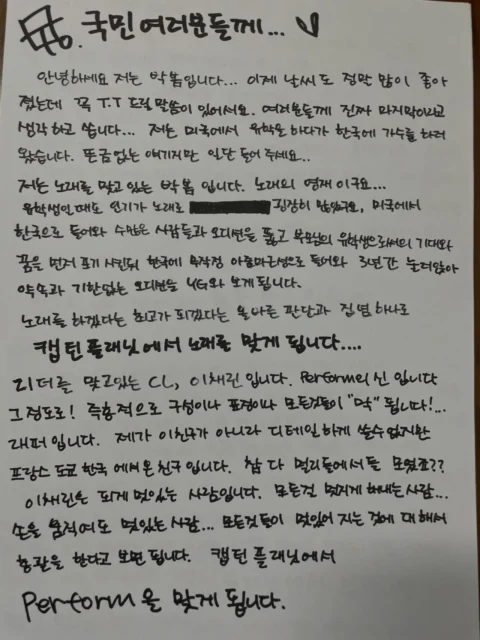 국민여러분들께...
안녕하세요 저는 박봄입니다... 이제 날씨도 정말 많이 좋아
졌는데 꼭 T.T 드릴 말씀이 있어서요. 여러분들께 진짜 마지막이라고
생각하고 씁니다... 저는 미국에서 유학을 하다가 한국에 가수를 하러
왔습니다. 뜬금없는 얘기지만 일단 들어 주세요..
저는 노래를 맞고 있는 박봄 입니다. 노래의 영재 이구요...
유학생인때도 인기가 노래로 굉장히 많았구요, 미국에서
한국으로 들어와 수많은 사람들과 오디션을 뚫고 부모님의 유학생으로써의 기대와
꿈을 먼저 포기 시킨뒤 한국에 무작정 들어와 3년간 눌러앉아
약속과 기한없는 오디션을 YG와 보게됩니다.
노래를 하겠다는 최고가 되겠다는 올바른 판단과 집념 하나로
캡틴 플래닛에서 노래를 맞게 됩니다....
리더를 맞고있는 CL, 이채린 입니다. Perform의 신 입니다
그정도로! 즉흥적으로 구성이나 표정이나 모든것들이 "딱" 됩니다!...
래퍼입니다. 제가 이친구가 아니라 디테일하게 쓸수없지만
프랑스 도쿄 한국 에서온 친구 입니다. 참 다 멀리들에서들 모였죠??
이채린은 되게 멋있는 사람입니다. 모든걸 멋지게 해내는 사람...
손을 움직여도 멋있는 사람... 모든것들이 멋있어 지는 것에 대해서
총괄을 한다고 보면 됩니다. 캡틴 플래닛에서
Perform을 맞게 됩니다.